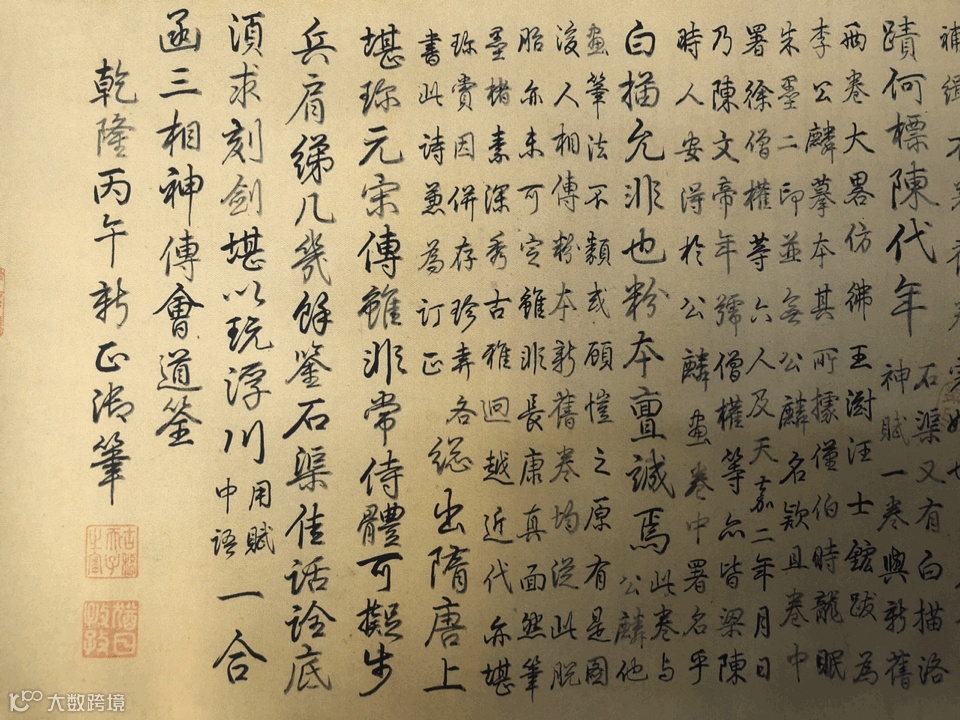 蹟何標陳代年
石渠又有白描洛
神賦一卷與新舊
兩卷大畧仿彿王澍汪士鋐跋為
李公麟摹本其所據僅伯時龍眠
朱墨二印並無公麟名款且卷中
署徐僧權等六人及天嘉二年月日
乃陳文帝年號僧權等亦皆梁陳
時人安得於公麟畫卷中署名乎
白描允非也粉本亶誠焉
此卷与
公麟他
畫筆法不類或顧愷之原有是圖
後人相傳粉本新舊卷均從此脫
胎亦未可定雖非長康真面然筆
墨楮素深秀古雅迥越近代亦堪
珍賞因併存珍弆各
書此詩兼為訂正
總出隋唐上
堪珍元宋傳雖非常侍體可擬步
兵肩綈几幾餘鑒石渠佳話詮底
須求刻劍堪以玩浮川
用賦
中語
一合
函三相神傳會道筌
乾隆丙午新正御筆
古稀天子之寶
猶日孜孜
大数跨境